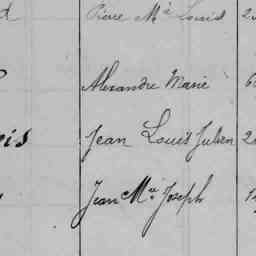 Pierre Mie Louis 2
Alexandre Marie 6
is Jean Louis Julien 2
Jean Mie Joseph 1